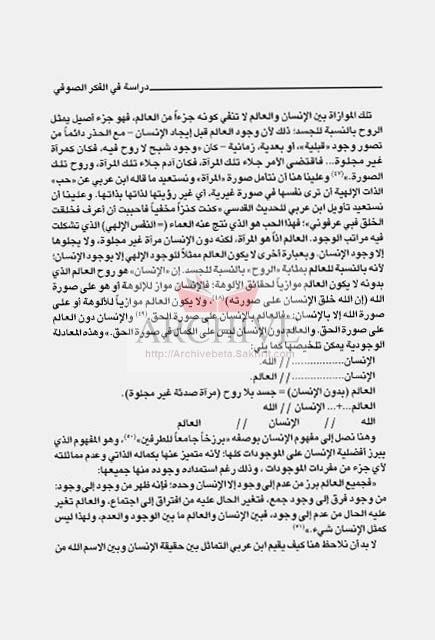 دراسة في الفكر الصوفي
تلك الموازاة بين الإنسان والعالم لا تنفي كونه جزءاً من العالم، فهو جزء أصيل يمثل
الروح بالنسبة للجسد؛ ذلك لأن وجود العالم قبل إيجاد الإنسان – مع الحذر دائماً من
تصور وجود «قبلية»، أو بعدية، زمانية – كان «وجود شبح لا روح فيه، فكان كمرآة
غير مجلوة... فاقتضى الأمر جلاء تلك المرآة، فكان آدم جلاء تلك المرآة، وروح تلك
الصورة.»(٤٧) وعلينا هنا أن نتأمل صورة «المرآة» ونستعيد ما قاله ابن عربي عن «حب»
الذات الإلهية أن ترى نفسها في صورة غيرية، أي غير رؤيتها لذاتها بذاتها. وعلينا أن
نستعيد تأويل ابن عربي للحديث القدسي «كنت كنزاً مخفياً فأحببت أن أعرف فخلقت
الخلق فبي عرفوني»؛ فهذا الحب هو الذي نتج عنه العماء (= النفس الإلهي) الذي تشكلت
فيه مراتب الوجود. العالم اذاً هو المرآة، لكنه دون الإنسان مرآة غير مجلوة، ولا يجلوها
إلا وجود الإنسان. وبعبارة أخرى لا يكون العالم ممثلاً للوجود الإلهي إلا بوجود الإنسان؛
لأنه بالنسبة للعالم بمثابة «الروح» بالنسبة للجسد. إن «الإنسان» هو روح العالم الذي
بدونه لا يكون العالم موازياً لحقائق الألوهة: فالإنسان مواز للألوهة أو هو على صورة
الله (إن الله خلق الإنسان على صورته)(٤٨)، ولا يكون العالم موازياً للألوهة أو على
صورة الله إلا بالإنسان: «فالعالم بالإنسان على صورة الحق،(٤٩) والإنسان دون العالم
على صورة الحق، والعالم دون الإنسان ليس على الكمال في صورة الحق.» وهذه المعادلة
الوجودية يمكن تلخيصها كما يلي:
ARCHIVE
http://Archivebeta.Sakhrit.com
الإنسان................// الله.
الإنسان................// العالم.
العالم (بدون الإنسان) = جسد بلا روح (مرآة صدئة غير مجلوة).
العالم...+... الإنسان // الله
الله // الإنسان // العالم
وهنا نصل إلى مفهوم الإنسان بوصفه «برزخاً جامعاً للطرفين»(٥٠)، وهو المفهوم الذي
يبرر أفضلية الإنسان على الموجودات كلها؛ لأنه متميز عنها بكماله الذاتي وعدم مماثلته
لأي جزء من مفردات الموجودات ، وذلك رغم استمداده وجوده منها جميعها:
«فجميع العالم برز من عدم إلى وجود إلا الإنسان وحده؛ فإنه ظهر من وجود إلى وجود:
من وجود فرق إلى وجود جمع، فتغير الحال عليه من افتراق إلى اجتماع، والعالم تغير
عليه الحال من عدم إلى وجود، فبين الإنسان والعالم ما بين الوجود والعدم، ولهذا ليس
كمثل الإنسان شيء.»(٥١)
لا بد أن نلاحظ هنا كيف يقيم ابن عربي التماثل بين حقيقة الإنسان وبين الاسم الله من